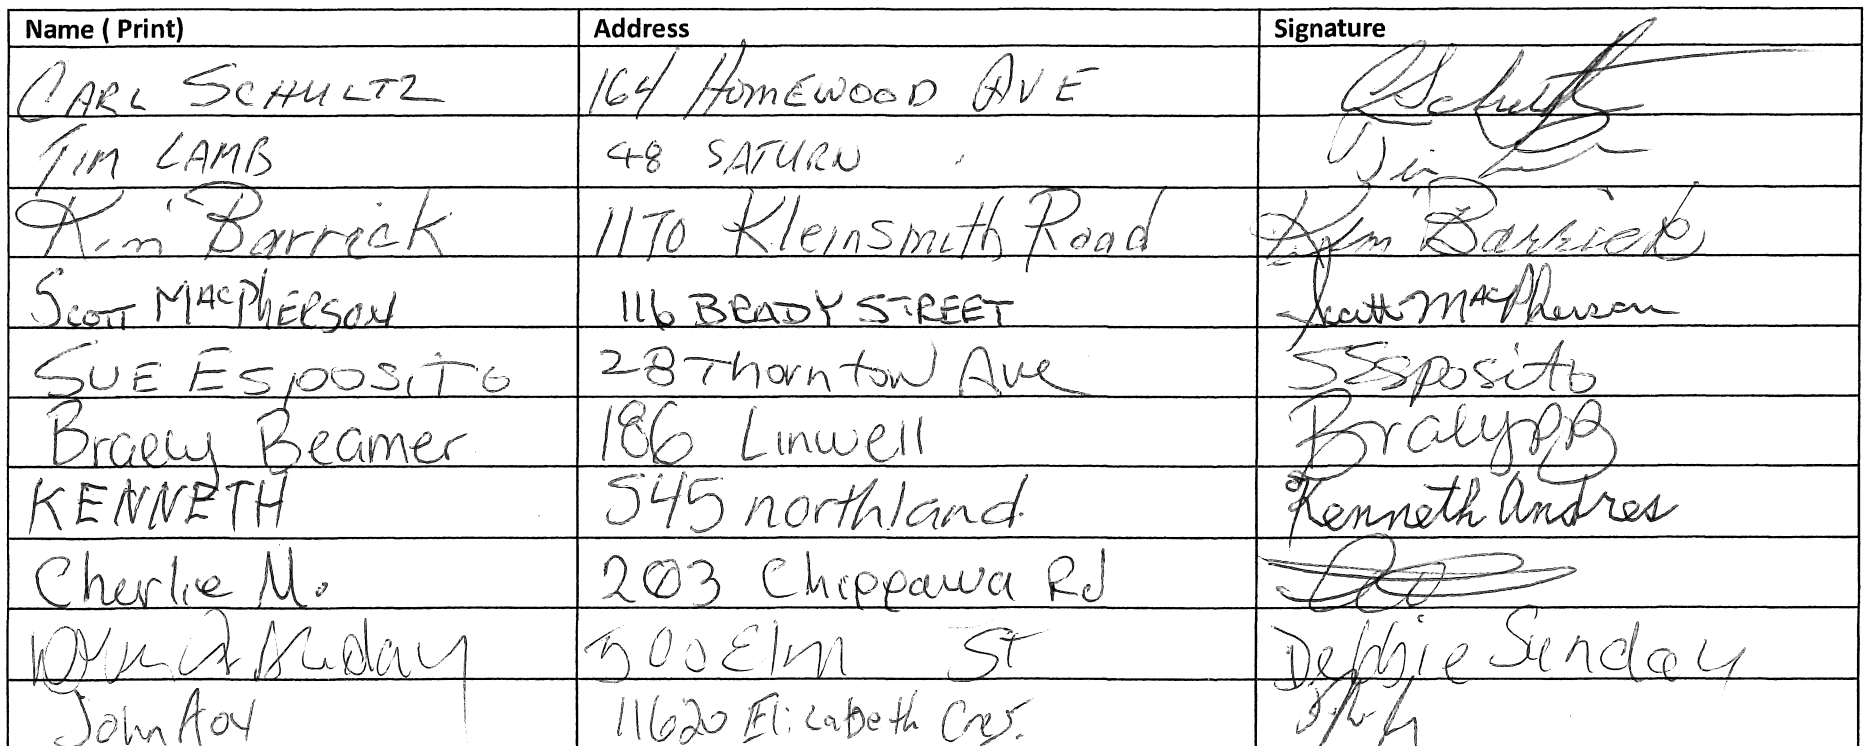 Name ( Print) Address Signature
CARL SCHULTZ 164 HOMEWOOD AVE CSchultz
TIM LAMB 48 SATURN Tim
Kim Barrick 1170 Kleinsmith Road Kim Barrick
SCOTT MACPHERSON 116 BRADY STREET Scott MacPherson
SUE ESPOSITO 28 Thornton Ave SEsposito
Braely Beamer 186 Linwell
KENNETH 545 northland Kenneth Andres
Cherlie M. 203 Chippawa Rd
Sunday 500 Elm St Debbie Sunday
John 11620 Elizabeth Cres.